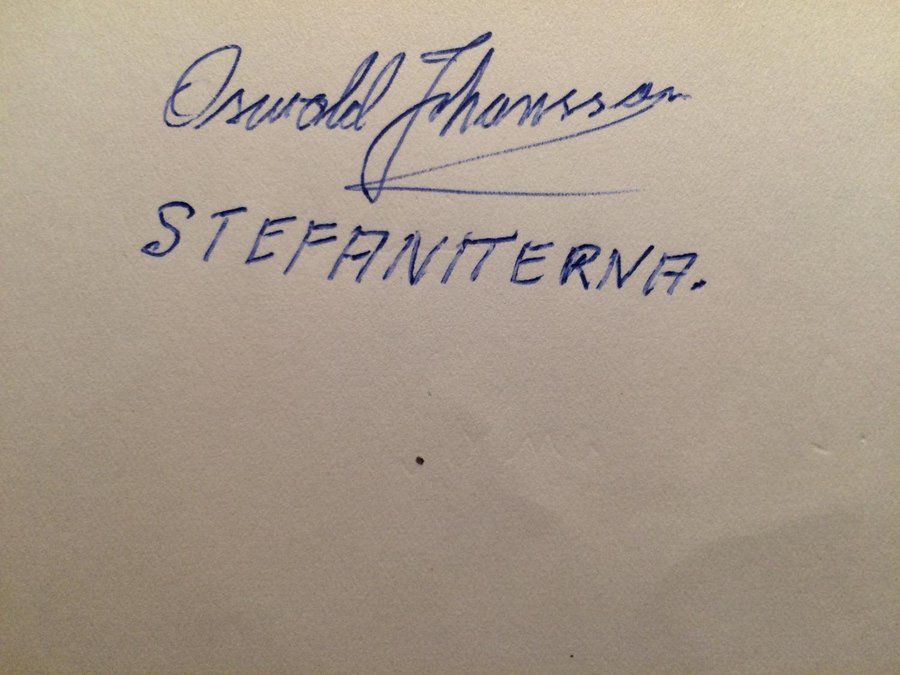 Oswald Johansson
STEFANITERNA.